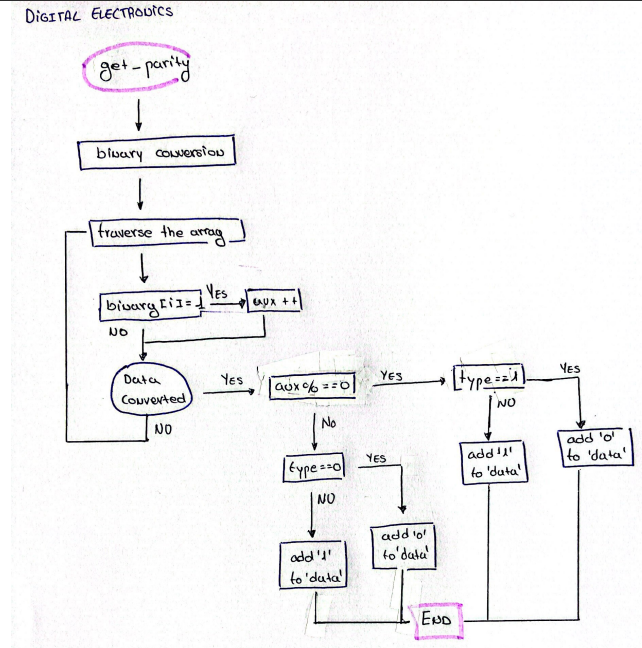 DIGITAL ELECTRONICS
get_parity
binary conversion
traverse the array
binary[i]=1
YES
aux ++
NO
Data
Converted
YES
aux%==0
YES
type==1
YES
NO
NO
No
add '1'
to 'data'
add '0'
to 'data'
type==0
YES
NO
add '1'
to 'data'
add '0'
to 'data'
END